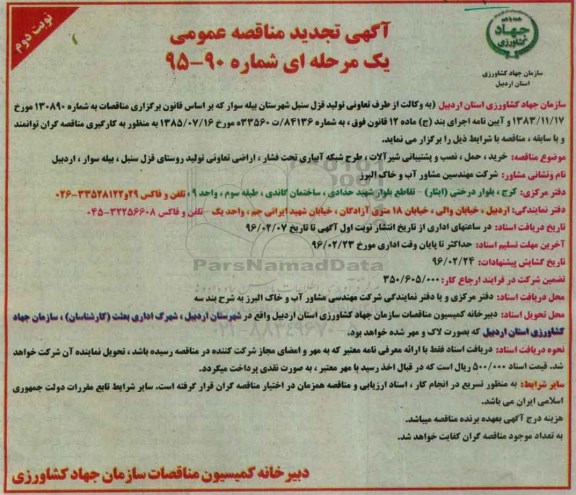 نوبت دوم
جهاد کشاورزی
سازمان جهاد کشاورزی
استان اردبیل
آگهی تجدید مناقصه عمومی
یک مرحله ای شماره ۹۰-۹۵
سازمان جهاد کشاورزی استان اردبیل (به وکالت از طرف تعاونی تولید قزل سنبل شهرستان بیله سوار که بر اساس قانون برگزاری مناقصات به شماره ۱۳۰۸۹۰ مورخ
۱۳۸۳/۱۱/۱۷ و آیین نامه اجرای بند (ج) ماده ۱۲ قانون فوق ، به شماره ۸۴۱۳۶/ت ۳۳۵۶۰ه مورخ ۱۳۸۵/۰۷/۱۶ به منظور به کارگیری مناقصه گران توانمند
و با سابقه ، مناقصه با شرایط ذیل را برگزار می نماید.
موضوع مناقصه: خرید ، حمل ، نصب و پشتیبانی شیرآلات ، طرح شبکه آبیاری تحت فشار ، اراضی تعاونی تولید روستای قزل سنبل ، بیله سوار ، اردبیل
نام ونشانی مشاور: شرکت مهندسین مشاور آب و خاک البرز
دفتر مرکزی: کرج ، بلوار درختی (ایثار) - تقاطع بلوار شهید حدادی ، ساختمان کاندی ، طبقه سوم ، واحد ۹ ، تلفن و فاکس ۲۹و۳۳۵۲۸۱۲۲-۰۲۶
دفتر نمایندگی: اردبیل ، خیابان والی ، خیابان ۱۸ متری آزادگان ، خیابان شهید ایرانی جم ، واحد یک - تلفن و فاکس ۳۳۲۵۶۶۰۸-۰۴۵
تاریخ دریافت اسناد: در ساعتهای اداری از تاریخ انتشار نوبت اول آگهی تا تاریخ ۹۶/۰۲/۰۷
آخرین مهلت تسلیم اسناد: حداکثر تا پایان وقت اداری مورخ ۹۶/۰۲/۲۳
تاریخ گشایش پیشنهادات: ۹۶/۰۲/۲۴
تضمین شرکت در فرایند ارجاع کار: ۳۵۰/۶۰۵/۰۰۰
محل دریافت اسناد: دفتر مرکزی و یا دفتر نمایندگی شرکت مهندسی مشاور آب و خاک البرز به شرح بند سه
محل تحویل اسناد: دبیرخانه کمیسیون مناقصات سازمان جهاد کشاورزی استان اردبیل واقع در شهرستان اردبیل ، شهرک اداری بعثت (کارشناسان) ، سازمان جهاد
کشاورزی استان اردبیل که بصورت لاک و مهر شده خواهد بود.
نحوه دریافت اسناد: دریافت اسناد فقط با ارائه معرفی نامه معتبر که به مهر و امضای مجاز شرکت کننده در مناقصه رسیده باشد ، تحویل نماینده آن شرکت خواهد
شد. قیمت اسناد ۵۰۰/۰۰۰ ریال است که در قبال اخذ رسید با مهر معتبر ، به صورت نقدی پرداخت میگردد.
سایر شرایط: به منظور تسریع در انجام کار ، اسناد ارزیابی و مناقصه همزمان در اختیار مناقصه گران قرار گرفته است. سایر شرایط تابع مقررات دولت جمهوری
اسلامی ایران می باشد.
هزینه درج آگهی بعهده برنده مناقصه میباشد.
به تعداد موجود مناقصه گران کفایت خواهد شد.
دبیرخانه کمیسیون مناقصات سازمان جهاد کشاورزی
ParsNamadData